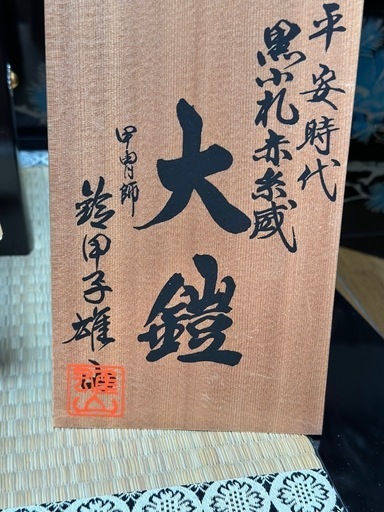 平安時代
黒小札赤糸威
大鎧
甲冑師
鈴甲子雄山